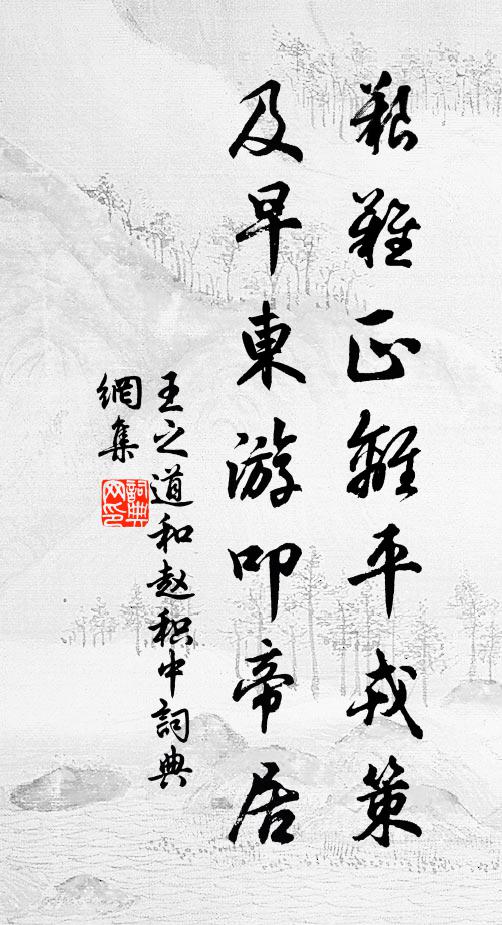 艱難正離平戎策
及早東游叩帝居
王之道和赵积中詞典
網集
詞典网印